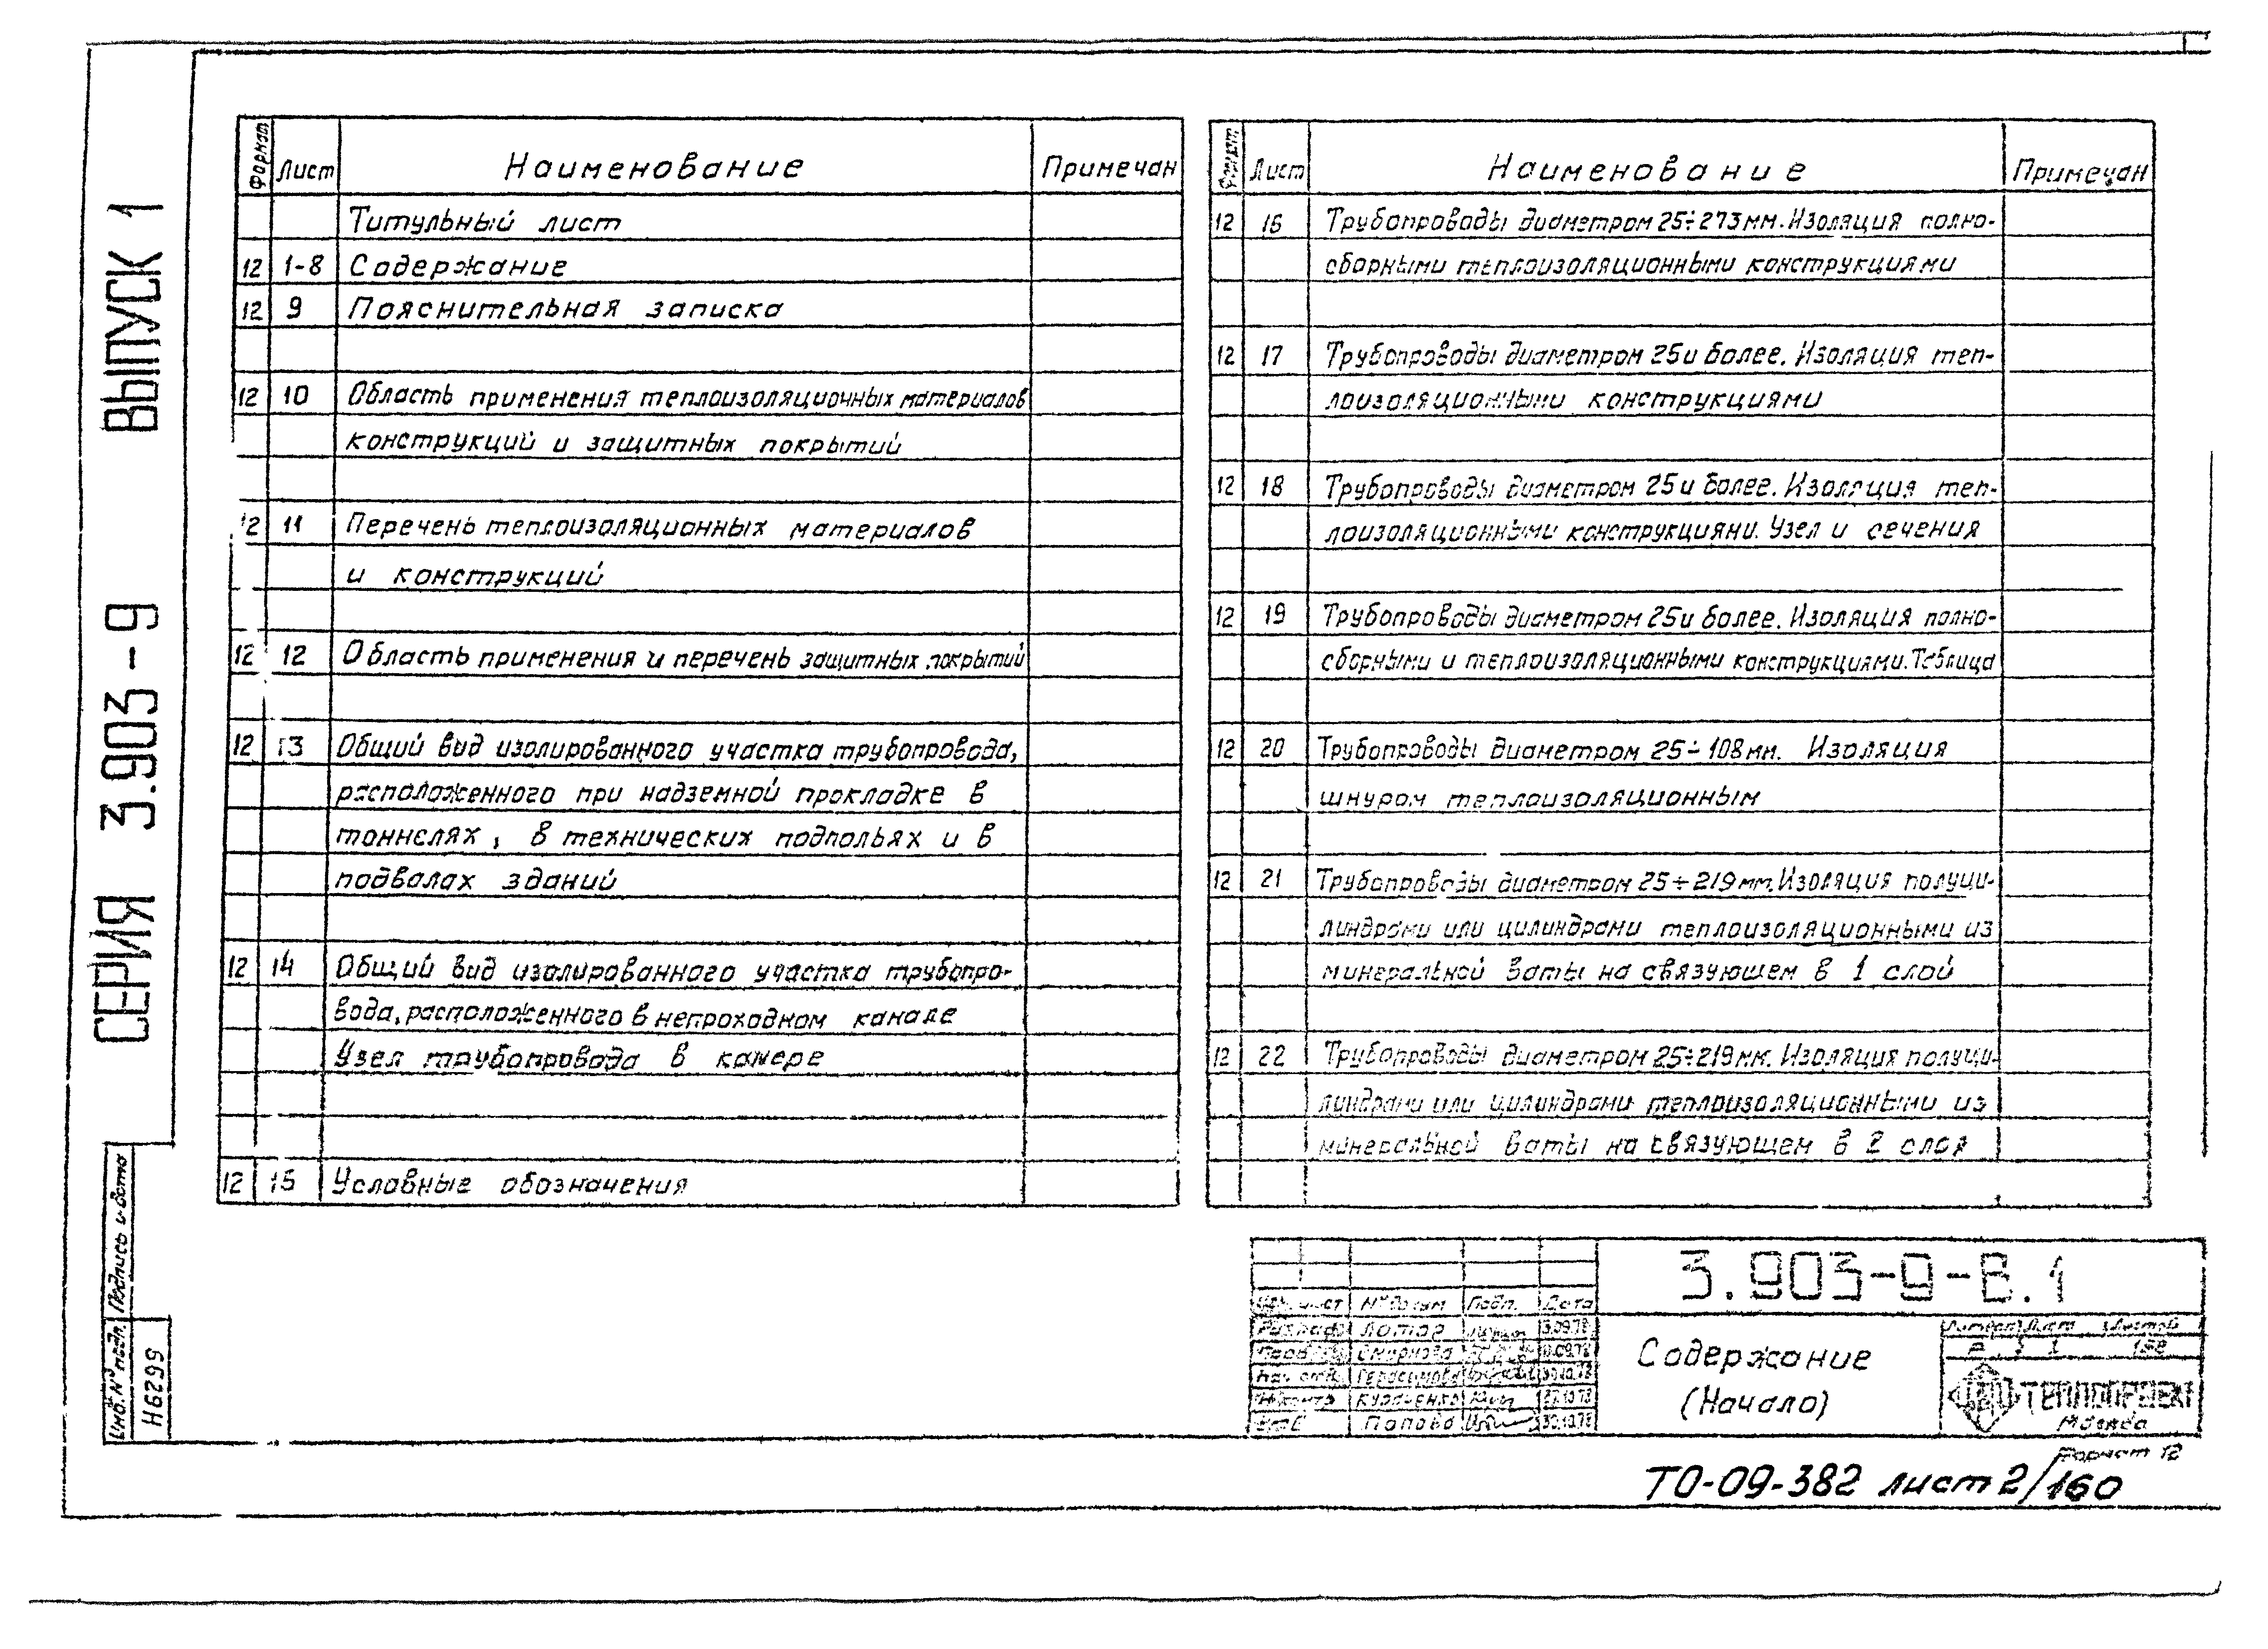 СЕРИЯ 3.903-9 ВЫПУСК 1
Формат Лист Наименование Примечан
Титульный лист
12 1-8 Содержание
12 9 Пояснительная записка
12 10 Область применения теплоизоляционных материалов
конструкций и защитных покрытий
12 11 Перечень теплоизоляционных материалов
и конструкций
12 12 Область применения и перечень защитных покрытий
12 13 Общий вид изолированного участка трубопровода,
расположенного при надземной прокладке в
тоннелях, в технических подпольях и в
подвалах зданий
12 14 Общий вид изолированного участка трубопро-
вода, расположенного в непроходном канале
Узел трубопровода в камере
12 15 Условные обозначения
Формат Лист Наименование Примечан
12 16 Трубопроводы диаметром 25÷273мм. Изоляция полно-
сборными теплоизоляционными конструкциями
12 17 Трубопроводы диаметром 25 и более. Изоляция теп-
лоизоляционными конструкциями
12 18 Трубопроводы диаметром 25 и более. Изоляция теп-
лоизоляционными конструкциями. Узел и сечения
12 19 Трубопроводы диаметром 25 и более. Изоляция полно-
сборными и теплоизоляционными конструкциями. Таблица
12 20 Трубопроводы диаметром 25÷108мм. Изоляция
шнуром теплоизоляционным
12 21 Трубопроводы диаметром 25÷219мм. Изоляция полуци-
линдрами или цилиндрами теплоизоляционными из
минеральной ваты на связующем в 1 слой
12 22 Трубопроводы диаметром 25÷219мм. Изоляция полуци-
линдрами или цилиндрами теплоизоляционными из
минеральной ваты на связующем в 2 слоя
Подпись и дата
Инв. № подл.
Н6299
3.903-9-В.1
лист № докум Подп. Дата
Лотар
Смирнова
Нач. отд. Герасимова 30.10.78
Н.контр Кузаченко 27.10.78
Попова 30.10.78
Содержание
(Начало)
Литера Лист Листов
Р 1 158
ТЕПЛОПРОЕКТ
Москва
Формат 12
ТО-09-382 лист 2/160